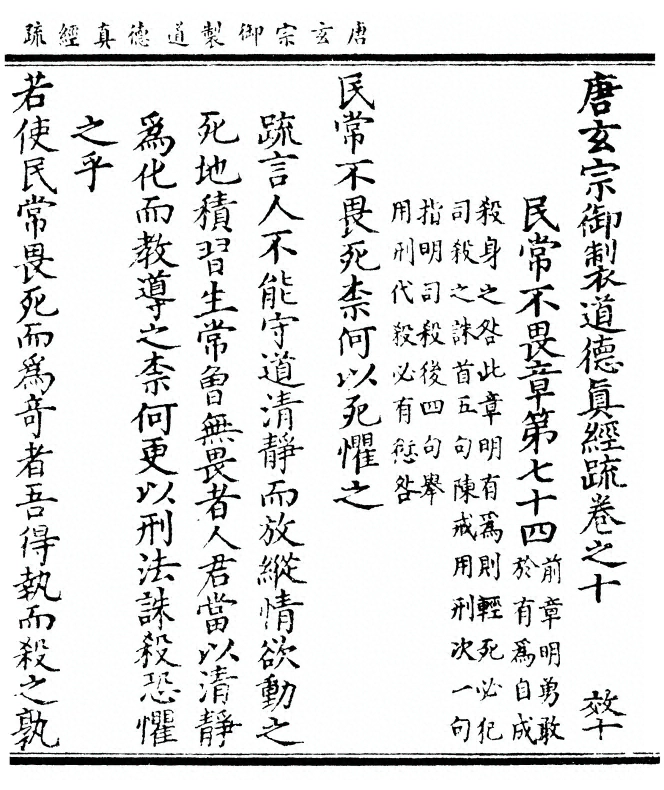 唐玄宗御製道德真經疏
唐玄宗御製道德眞經疏卷之十 效十
民常不畏章第七十四
前章明勇敢
於有爲自成
殺身之咎此章明有爲則輕死必犯
司殺之誅首五句陳戒用刑次一句
指明司殺後四句舉
用刑代殺必有愆咎
民常不畏死柰何以死懼之
疏言人不能守道清靜而放縱情欲動之
死地積習生常曾無畏者人君當以清靜
爲化而教導之柰何更以刑法誅殺恐懼
之乎
若使民常畏死而爲奇者吾得執而殺之孰